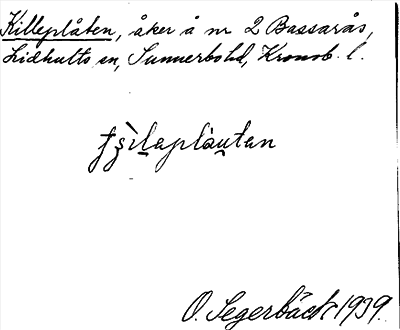 Killeplåten, åker å nr 2 Bassarås,
Lidhults sn, Sunnerbo hd, Kronob. l.
tşìlaplàutan
O. Segerbäck 1939.